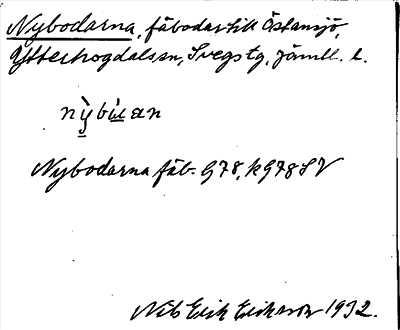 Nybodarna, fäbodar till Östansjö,
Ytterhogdals sn, Svegs tg, Jämtl. l.
nỳbùan
Nybodarna fäb. G78, kG78SV
Nils Erik Eriksson 1932.